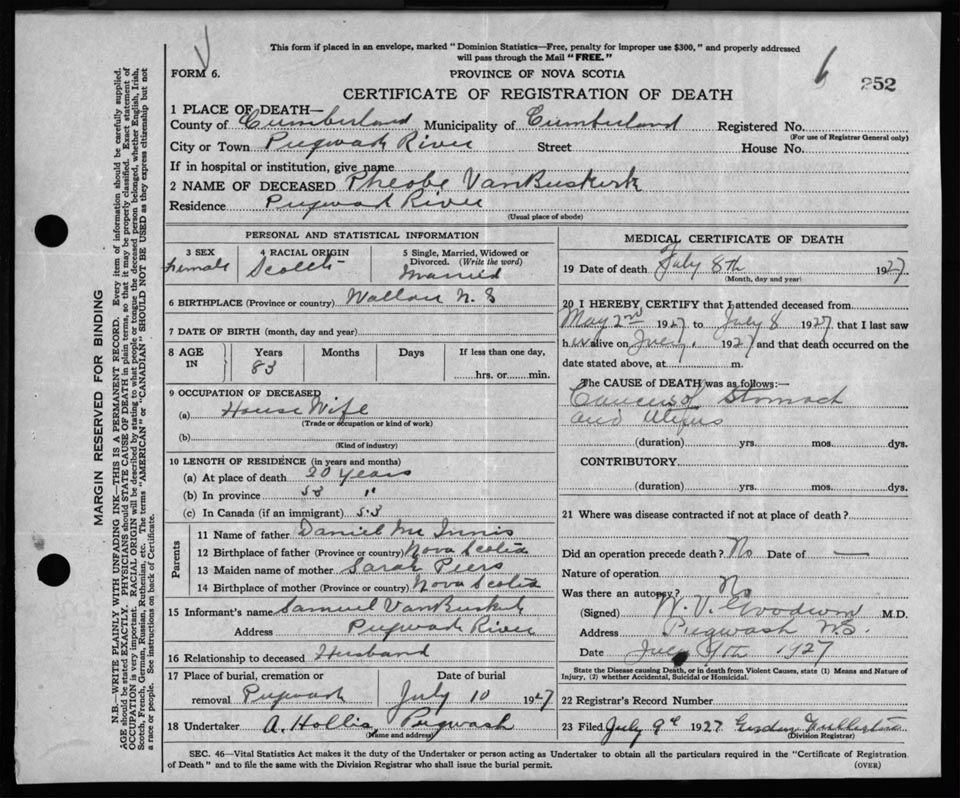 This form if placed in an envelope, marked "Dominion Statistics—Free, penalty for improper use $300," and properly addressed
will pass through the Mail "FREE."
FORM 6.
PROVINCE OF NOVA SCOTIA
6
252
CERTIFICATE OF REGISTRATION OF DEATH
1 PLACE OF DEATH—
County of Cumberland Municipality of Cumberland Registered No.
(For use of Registrar General only)
City or Town Pugwash River Street House No.
If in hospital or institution, give name
2 NAME OF DECEASED Pheobe VanBuskirk
Residence Pugwash River
(Usual place of abode)
PERSONAL AND STATISTICAL INFORMATION
3 SEX 4 RACIAL ORIGIN 5 Single, Married, Widowed or
Divorced. (Write the word)
Female Scotch Married
6 BIRTHPLACE (Province or country) Wallace N.S
7 DATE OF BIRTH (month, day and year)
8 AGE IN Years Months Days If less than one day,
83
hrs. or min.
9 OCCUPATION OF DECEASED
(a) House Wife
(Trade or occupation or kind of work)
(b)
(Kind of industry)
10 LENGTH OF RESIDENCE (in years and months)
(a) At place of death 20 years
(b) In province "
(c) In Canada (if an immigrant)
Parents
11 Name of father Daniel McInnis
12 Birthplace of father (Province or country) Nova Scotia
13 Maiden name of mother Sarah Piers
14 Birthplace of mother (Province or country) Nova Scotia
15 Informant's name Samuel VanBuskirk
Address Pugwash River
16 Relationship to deceased Husband
17 Place of burial, cremation or Date of burial
removal Pugwash July 10 1927
18 Undertaker A. Hollis, Pugwash
(Name and address)
MEDICAL CERTIFICATE OF DEATH
19 Date of death July 8th 1927
(Month, day and year)
20 I HEREBY CERTIFY that I attended deceased from
May 2nd 1927 to July 8 1927 that I last saw
her alive on July 1927 and that death occurred on the
date stated above, at m.
The CAUSE OF DEATH was as follows:—
Cancer of Stomach
and
(duration) yrs. mos. dys.
CONTRIBUTORY
(duration) yrs. mos. dys.
21 Where was disease contracted if not at place of death?
Did an operation precede death? No Date of —
Nature of operation
Was there an autopsy? No
(Signed) W. V. Goodwin M.D.
Address Pugwash N.S.
Date July 9th 1927
State the Disease causing Death, or in death from Violent Causes, state (1) Means and Nature of
Injury, (2) whether Accidental, Suicidal or Homicidal.
22 Registrar's Record Number
23 Filed July 9th 1927
(Division Registrar)
SEC. 46—Vital Statistics Act makes it the duty of the Undertaker or person acting as Undertaker to obtain all the particulars required in the "Certificate of Registration
of Death" and to file the same with the Division Registrar who shall issue the burial permit.
(OVER)
MARGIN RESERVED FOR BINDING
N.B.—WRITE PLAINLY WITH UNFADING INK—THIS IS A PERMANENT RECORD. Every item of information should be carefully supplied.
AGE should be stated EXACTLY. PHYSICIANS should STATE CAUSE OF DEATH in plain terms, so that it may be properly classified. Exact statement of
OCCUPATION is very important. RACIAL ORIGIN will be described by stating to what people or tongue the deceased person belonged, whether English, Irish,
Scotch, French, German, Russian, Ruthenian, etc. The terms "AMERICAN" or "CANADIAN" SHOULD NOT BE USED as they express citizenship but not
a race or people. See instructions on back of Certificate.